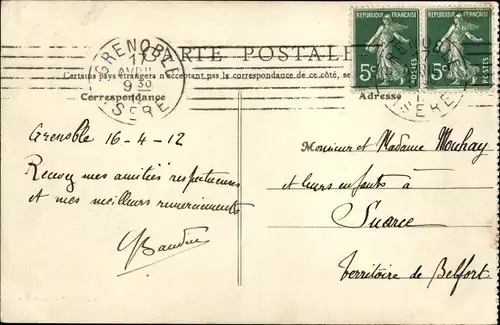 CARTE POSTALE
Certains pays étrangers n'acceptant pas la correspondance de ce côté, se
Correspondance
Adresse
GRENOBLE
17
AVRIL
9 30
ISERE
REPUBLIQUE FRANÇAISE
5c
POSTES
REPUBLIQUE FRANÇAISE
5c
POSTES
Grenoble 16-4-12
Recevez mes amitiés respectueuses
et mes meilleurs remerciements
Monsieur et Madame Mouhay
et leurs enfants à
Suarce
territoire de Belfort